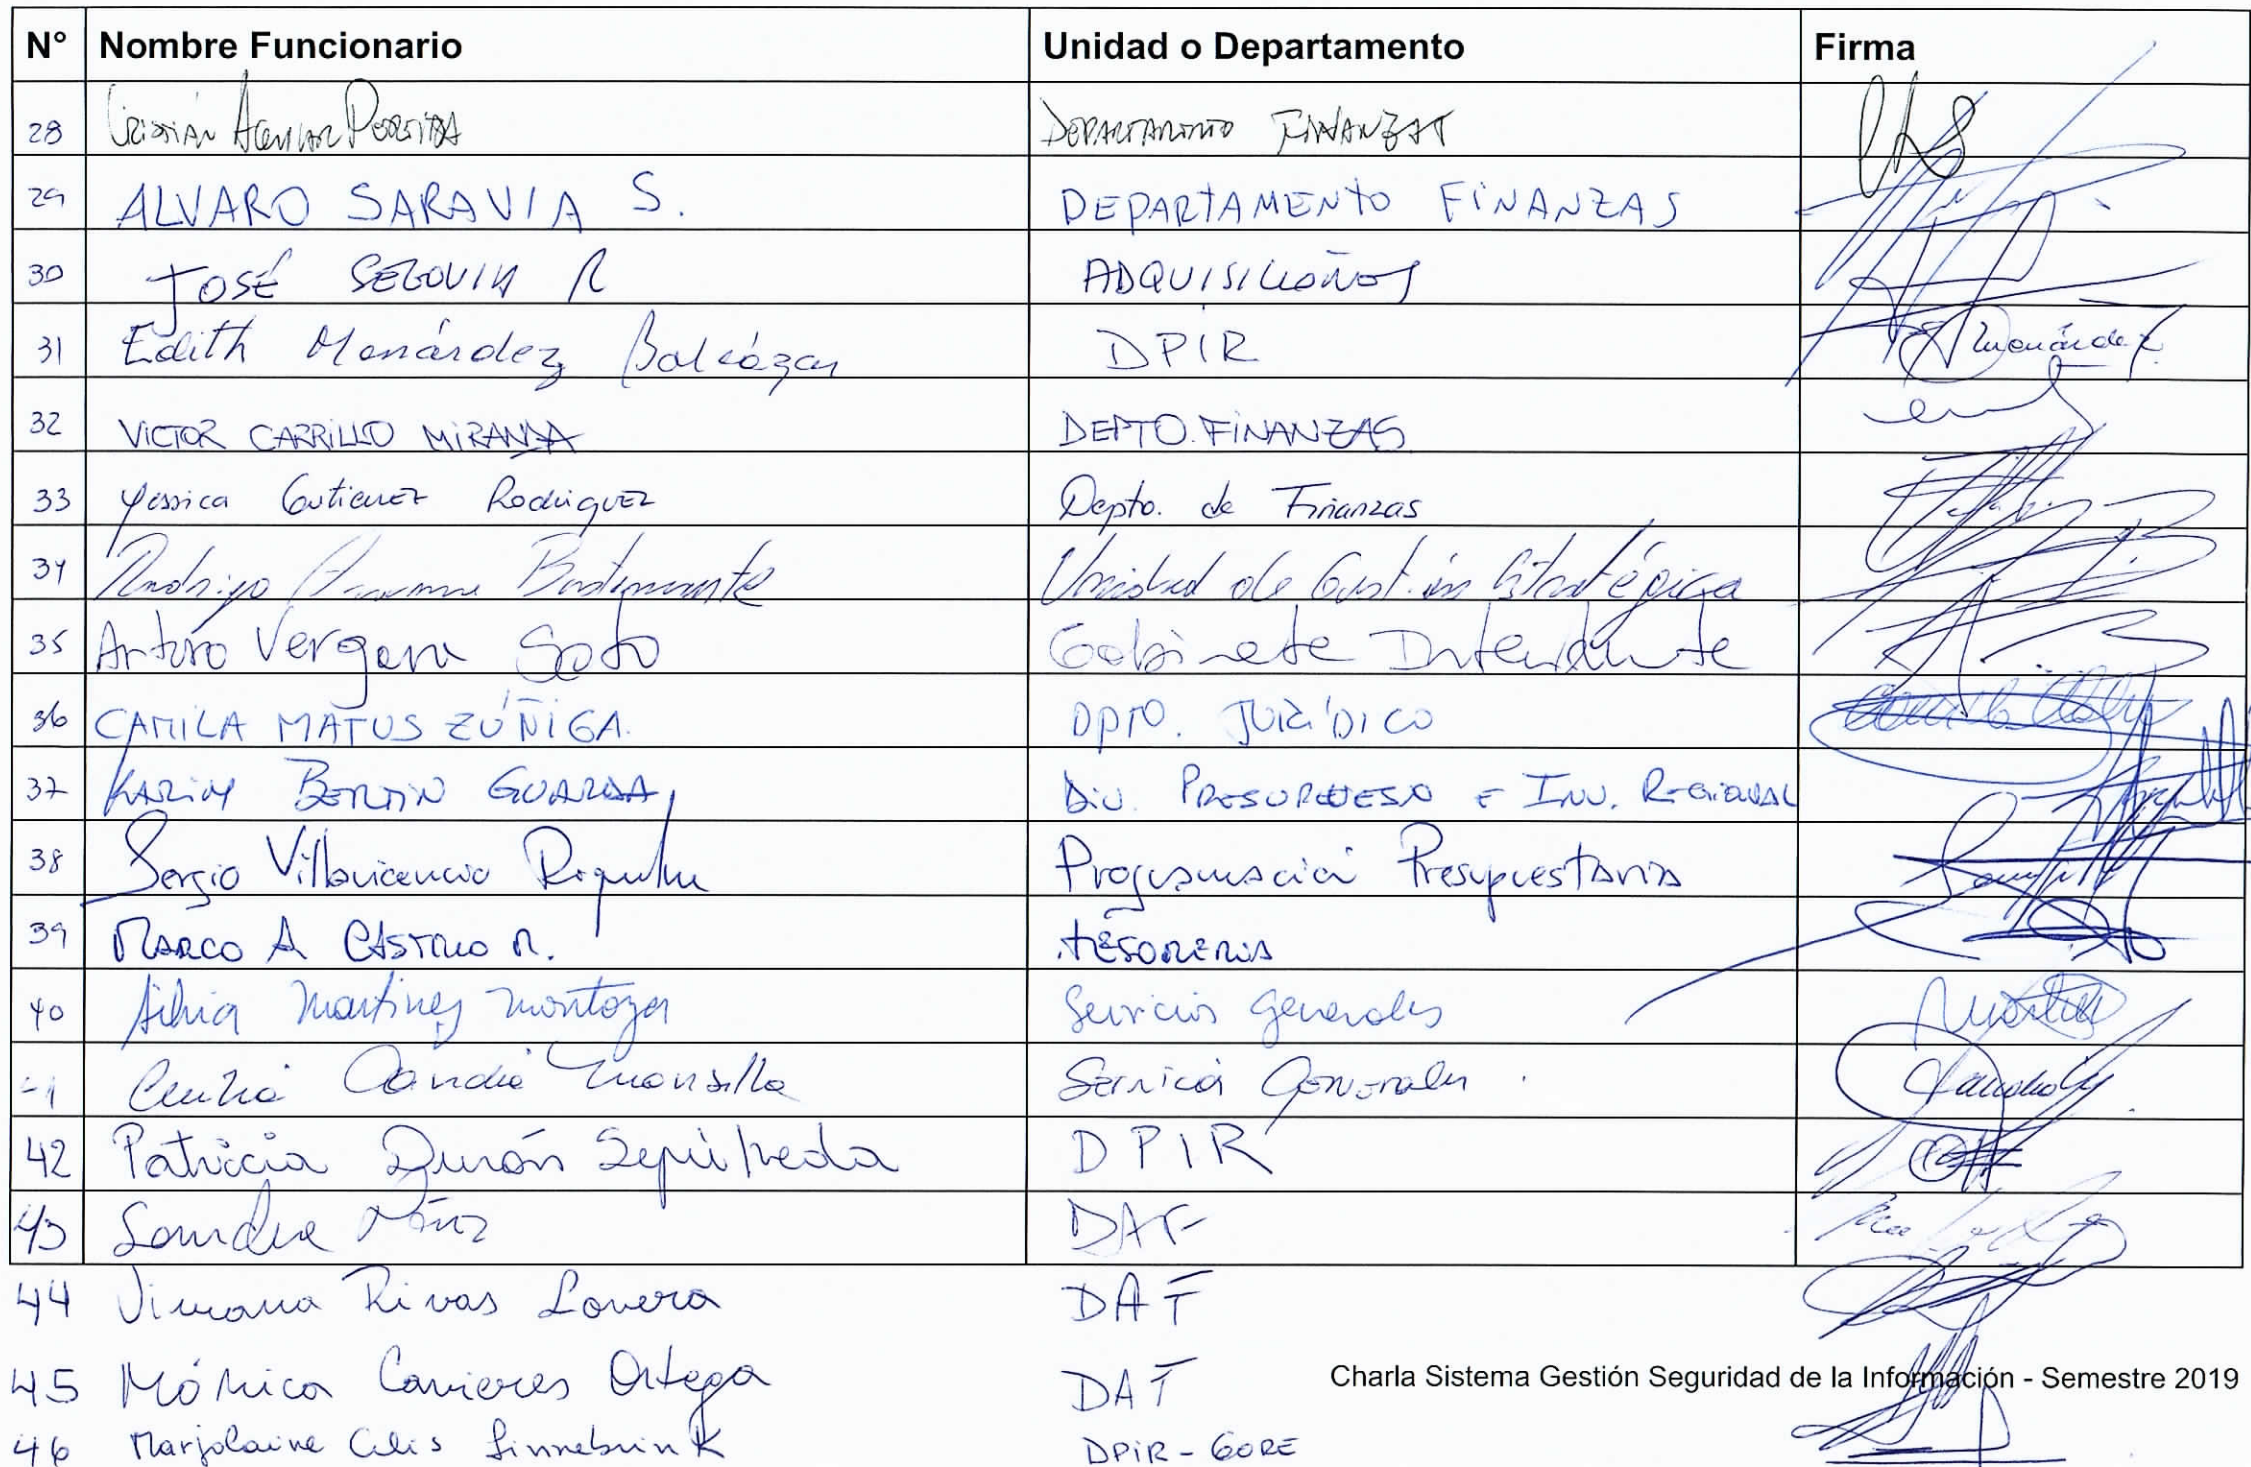 N° Nombre Funcionario Unidad o Departamento Firma
28 Cristián Aguilar DEPARTAMENTO FINANZAS
29 ALVARO SARAVIA S. DEPARTAMENTO FINANZAS
30 JOSÉ SEGOVIA R ADQUISICIONES
31 Edith Menández Balcázar DPIR
32 VICTOR CARRILLO MIRANDA DEPTO. FINANZAS
33 Yessica Gutierrez Rodriguez Depto. de Finanzas
34 Rodrigo Bustamante Unidad de Gestión Estratégica
35 Arturo Vergara Soto Gabinete Intendente
36 CAMILA MATUS ZÚÑIGA. DPTO. JURÍDICO
37 KARIM BERTIN GUARDA DIV. PRESUPUESTO E INV. REGIONAL
38 Sergio Villavicencio Programación Presupuestaria
39 MARCO A CASTRO R. TESORERIA
40 Silvia Martinez Montoya Servicios Generales
41 Cecilia Mansilla Servicios Generales
42 Patricia Durán Sepúlveda DPIR
43 Sandra DAF
44 Rivas Lovera DAF
45 Mónica Cavieres Ortega DAF
Charla Sistema Gestión Seguridad de la Información - Semestre 2019
46 Marjolaine Celis Sinnebrink DPIR - GORE